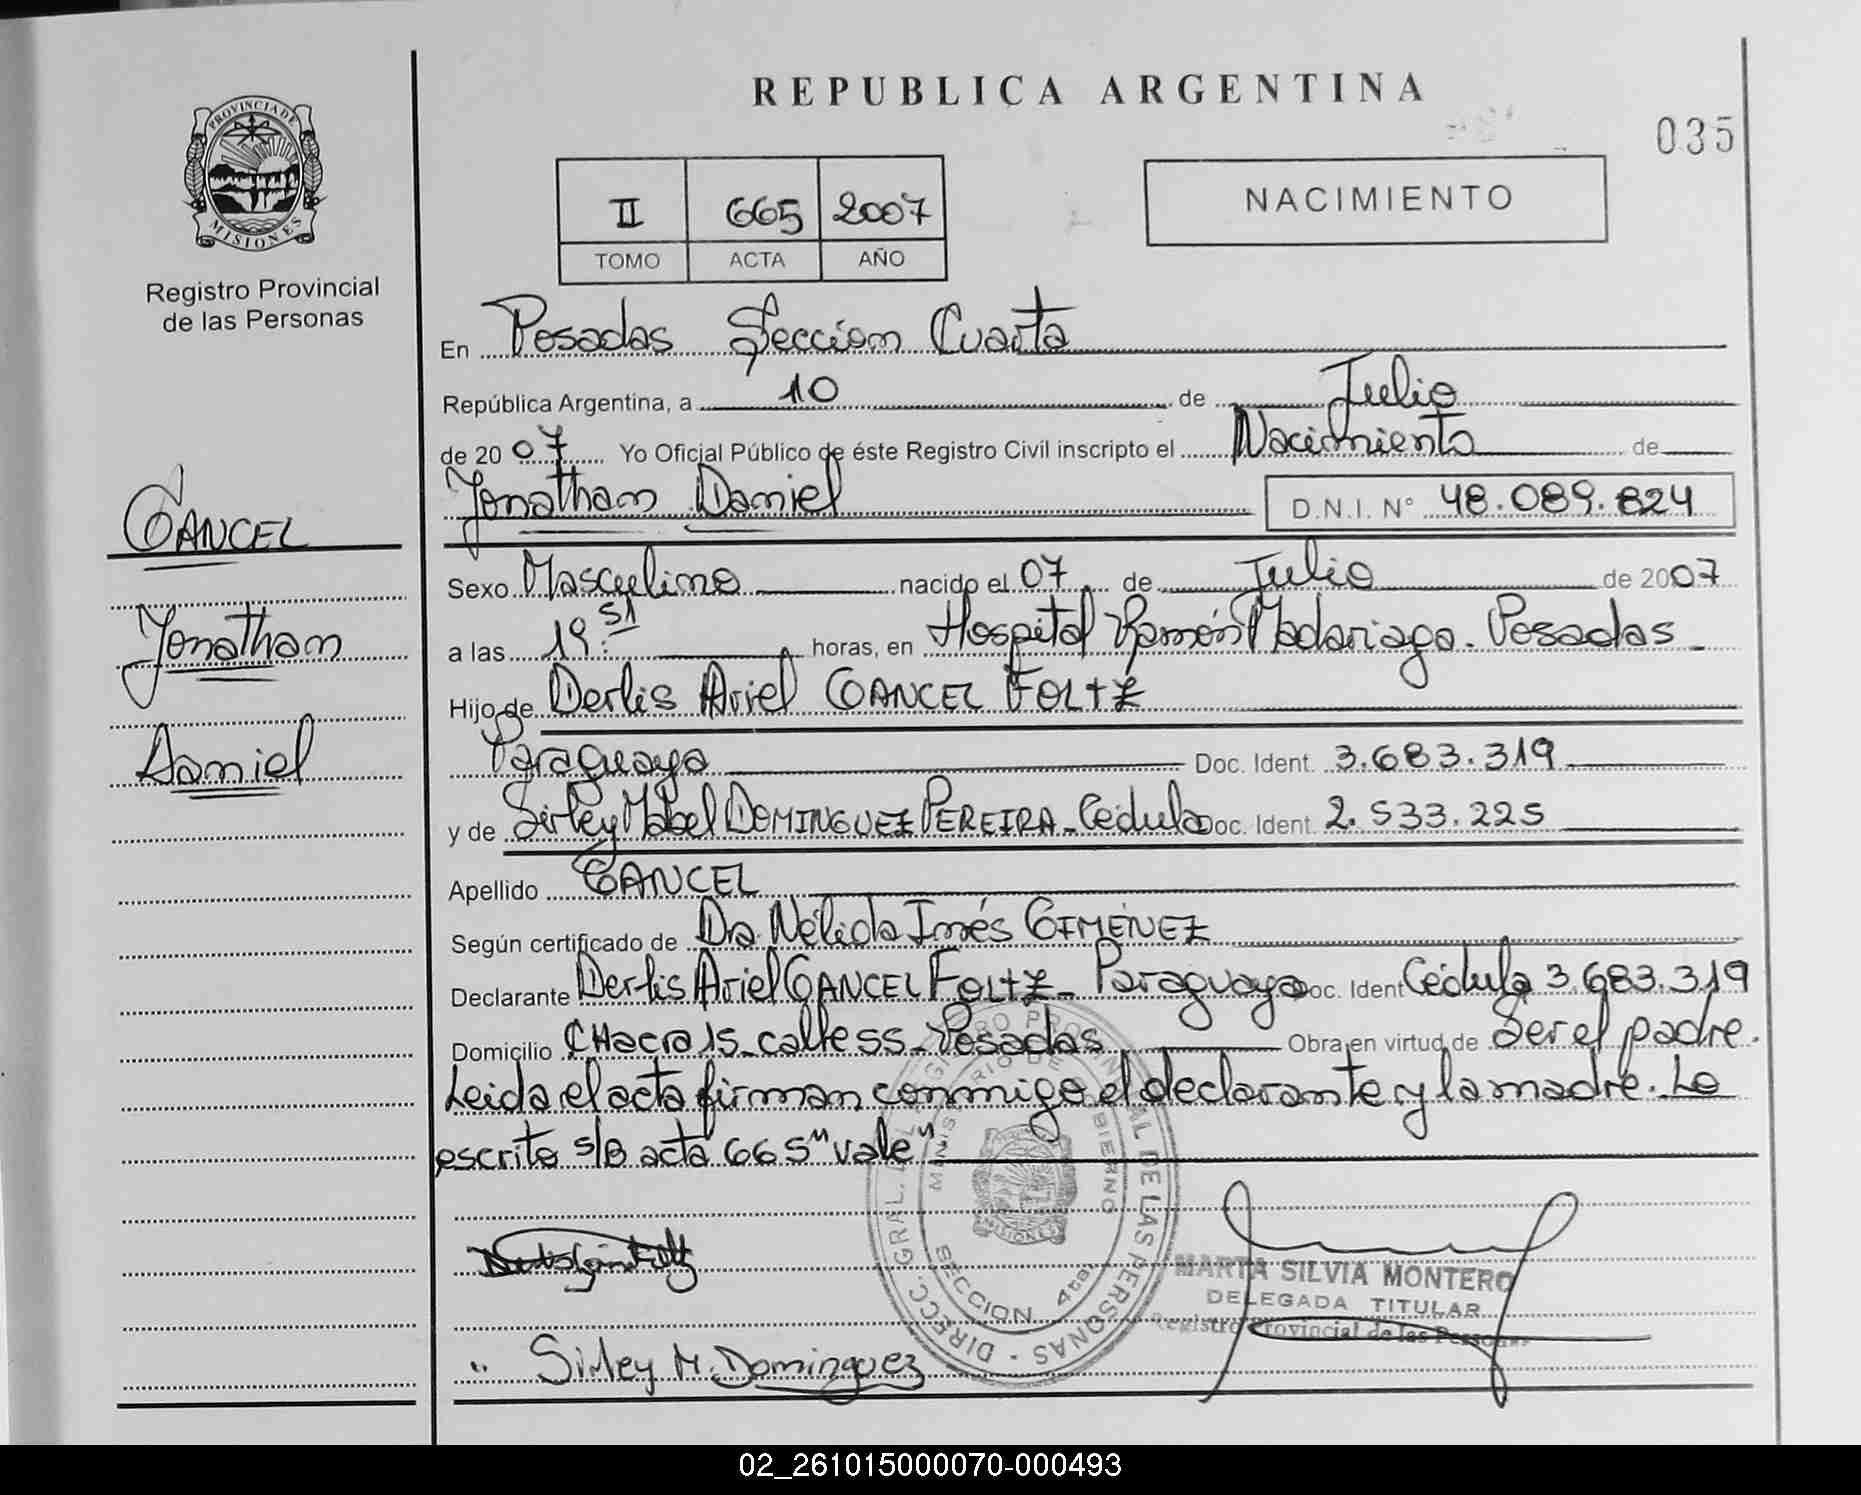 REPUBLICA ARGENTINA
035
PROVINCIA DE
MISIONES
Registro Provincial
de las Personas
II 665 2007
TOMO ACTA AÑO
NACIMIENTO
En Posadas Sección Cuarta
República Argentina, a 10 de Julio
de 2007 Yo Oficial Público de éste Registro Civil inscripto el Nacimiento de
Jonatham Daniel D.N.I. N° 48.089.824
GANCEL
Jonatham
Daniel
Sexo Masculino nacido el 07 de Julio de 2007
a las 19:51 horas, en Hospital Ramón Madariaga. Posadas
Hijo de Derlis Ariel GANCEL FOLTZ
Paraguayo Doc. Ident. 3.683.319
y de Sirley Mabel DOMINGUEZ PEREIRA - Cédula Doc. Ident. 2.533.225
Apellido GANCEL
Según certificado de Dra. Nélida Inés GIMÉNEZ
Declarante Derlis Ariel GANCEL FOLTZ - Paraguayo Doc. Ident Cédula 3.683.319
Domicilio CHacra 15 - calle 55 - Posadas Obra en virtud de Ser el padre.
Leida el acta firman conmigo el declarante y la madre. Lo
escrito s/B acta 665 "vale"
DIRECC. GRAL. DEL REGISTRO PROVINCIAL DE LAS PERSONAS
MINISTERIO DE GOBIERNO
MISIONES
SECCION 4ta.
MARTA SILVIA MONTERO
DELEGADA TITULAR
Registro Provincial de las Personas
Sirley M. Dominguez
02_261015000070-000493